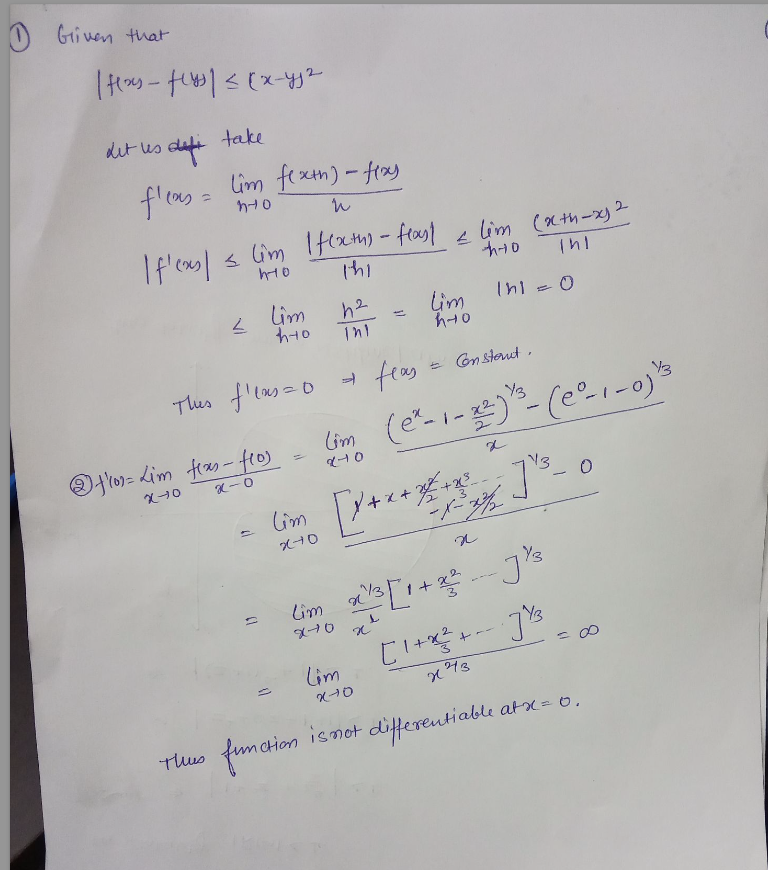 ① Given that
|f(x) - f(y)| ≤ (x-y)²
Let us take
f'(x) = lim h→0 f(x+h) - f(x) / h
|f'(x)| ≤ lim h→0 |f(x+h) - f(x)| / |h| ≤ lim h→0 (x+h-x)² / |h|
≤ lim h→0 h² / |h| = lim h→0 |h| = 0
Thus f'(x) = 0 ⇒ f(x) = Constant.
② f'(0) = Lim x→0 f(x) - f(0) / x-0 = lim x→0 (eˣ - 1 - x²/2)^1/3 - (e⁰ - 1 - 0)^1/3 / x
= lim x→0 [1 + x + x²/2 + x³/3 ---- - 1 - x²/2]^1/3 - 0 / x
= lim x→0 x^1/3 / x¹ [1 + x²/3 ----]^1/3
= lim x→0 [1 + x²/3 + ---]^1/3 / x^2/3 = ∞
Thus function is not differentiable at x = 0.